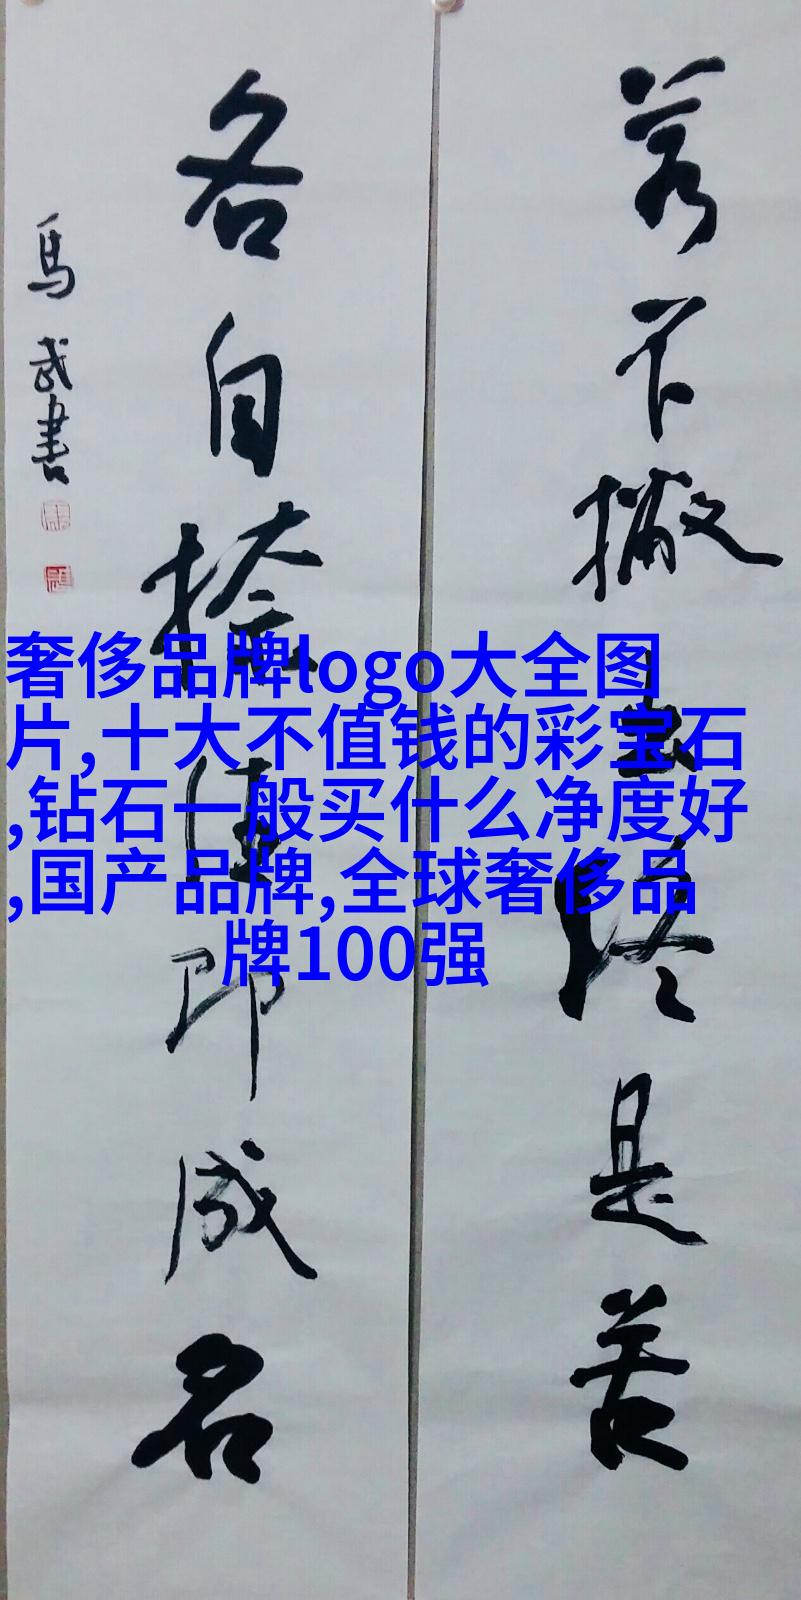 若不撇出终是苦
各自捺即成名
馬武書
奢侈品牌logo大全图
片,十大不值钱的彩宝石
,钻石一般买什么净度好
,国产品牌,全球奢侈品
牌100强